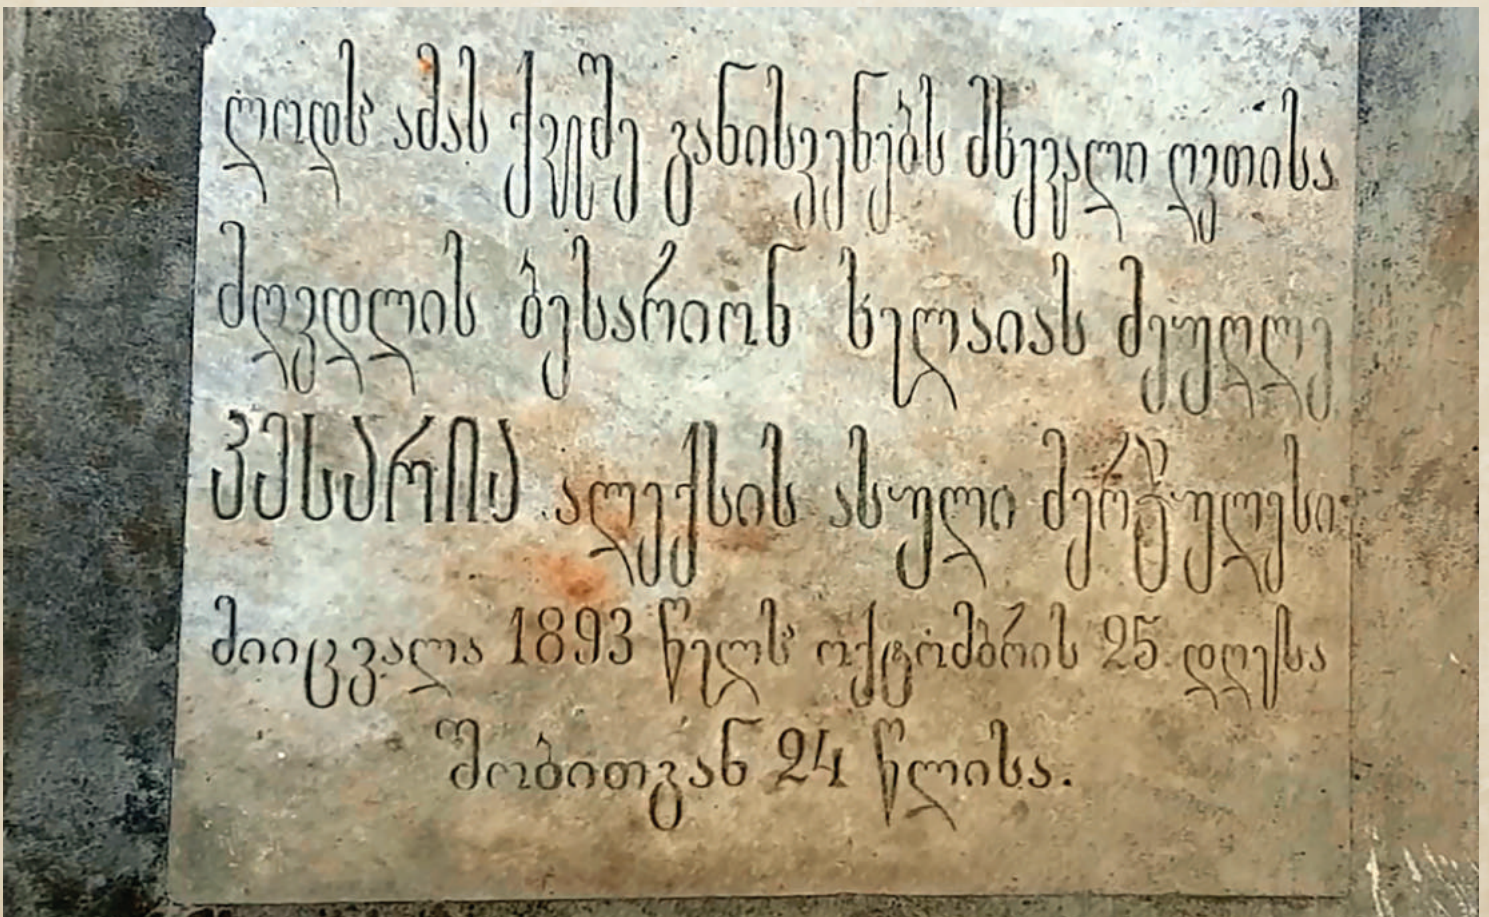 ლოდს ამას ქვეშე განისვენებს მხევალი ღვთისა
მღვდლის ბესარიონ ხელაიას მეუღლე
კესარია ალექსის ასული მერჭულესი
მიიცვალა 1893 წელს ოქტომბრის 25 დღესა
შობითგან 24 წლისა.